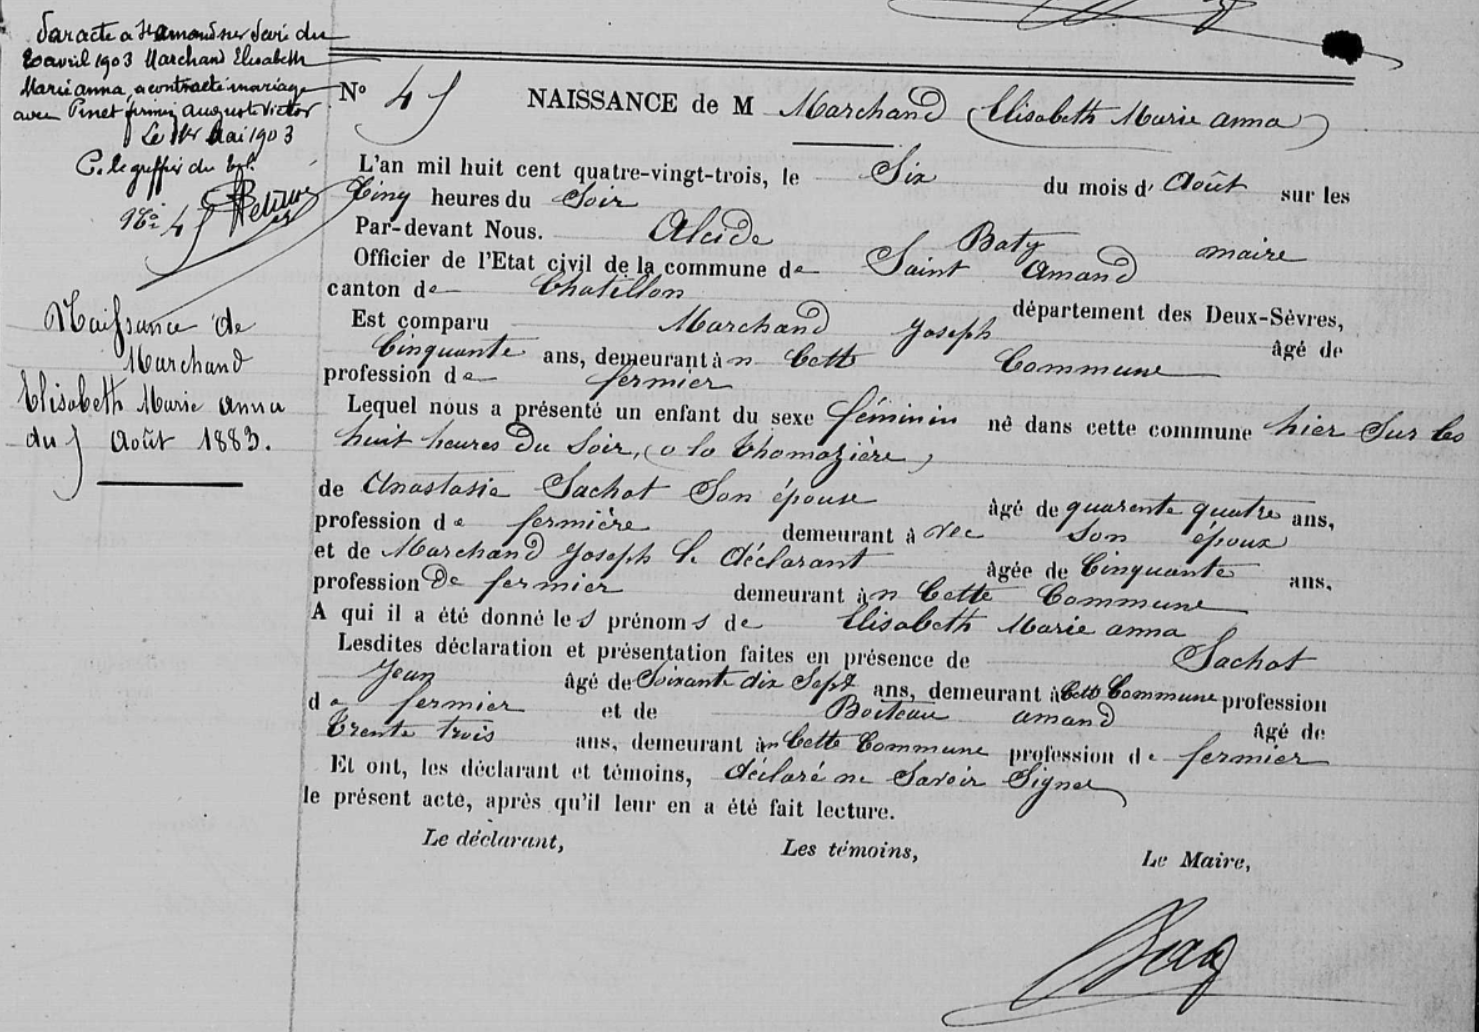 Par acte à St amand sur Sevre du
20 avril 1903 Marchand Elisabeth
Marie anna, a contracté mariage
avec Pinet firmin auguste victor
Le 1er Mai 1903
P. le greffier du bal
No 45
Naissance de
Marchand
Elisabeth Marie anna
du 5 Août 1883.
No 45 NAISSANCE de M Marchand (Elisabeth Marie anna)
L'an mil huit cent quatre-vingt-trois, le Six du mois d' Août sur les
Cinq heures du Soir
Par-devant Nous. Alcide Baty maire
Officier de l'Etat civil de la commune de Saint Amand
canton de Chatillon département des Deux-Sèvres,
Est comparu Marchand Joseph âgé de
Cinquante ans, demeurant à n Cette Commune
profession de fermier
Lequel nous a présenté un enfant du sexe féminin né dans cette commune hier Sur les
huit heures Du Soir, (a la Thomazière)
de Anastasie Sachot Son épouse âgé de quarente quatre ans,
profession de fermière demeurant à vec Son époux
et de Marchand Joseph le déclarant âgée de Cinquante ans.
profession De fermier demeurant à n Cette Commune
A qui il a été donné les prénoms de Elisabeth Marie anna
Lesdites déclaration et présentation faites en présence de Sachot
Jean âgé de Soixante dix Sept ans, demeurant à Cette Commune profession
de fermier et de Boiteau amand âgé de
Trente trois ans, demeurant à n Cette Commune profession de fermier
Et ont, les déclarant et témoins, déclaré ne Savoir Signer
le présent acte, après qu'il leur en a été fait lecture.
Le déclarant, Les témoins, Le Maire,
Baty